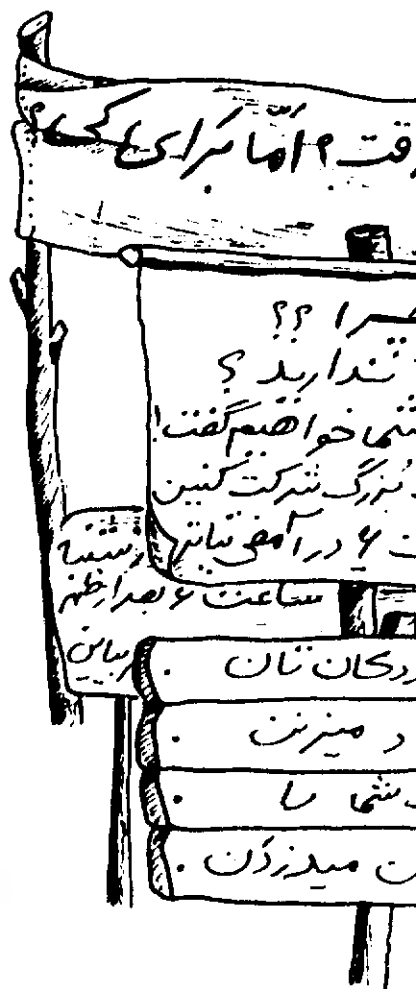 قت؟ امّا برای کی؟
را ؟؟
ندارید ؟
شما خواهیم گفت!
بزرگ شرکت کنین
۶ در آمفی تیاتر
شنبه
ساعت ۶ بعد از ظهر
دکان تان .
د میزنن .
شما را .
میدزدن .